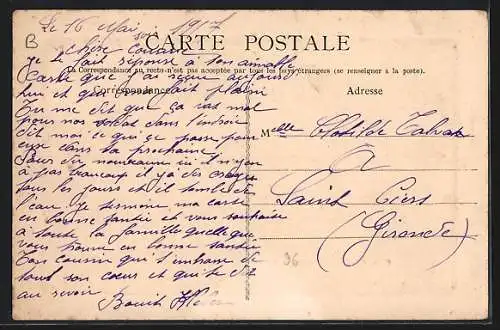 Le 16 Mai 1917
B
soir
chère cousine
CARTE POSTALE
Je te fait réponse à ton aimable
La Correspondance au recto n'est pas acceptée par tous les pays étrangers (se renseigner à la poste).
Carte que j'ai reçue aujourd
Correspondance
Adresse
hui et qui m'a fait plaisir
Tu me dit que ça vas mal
pour nos dans
dit moi ce qui ce passe pour
eux dans ta prochaine
Pour du nouveau il n'y en
a pas beaucoup il y a des orages
tous les jours et il tombe de
l'eau. Je termine ma carte
en bonne santée et vous souhaite
à toute la famille quelle que
vous trouve en bonne santée
Ton cousin qui t'embrasse de
tout son cœur et qui te dit
au revoir
Melle Clotilde
A
Saint Ciers
(Gironde)
96